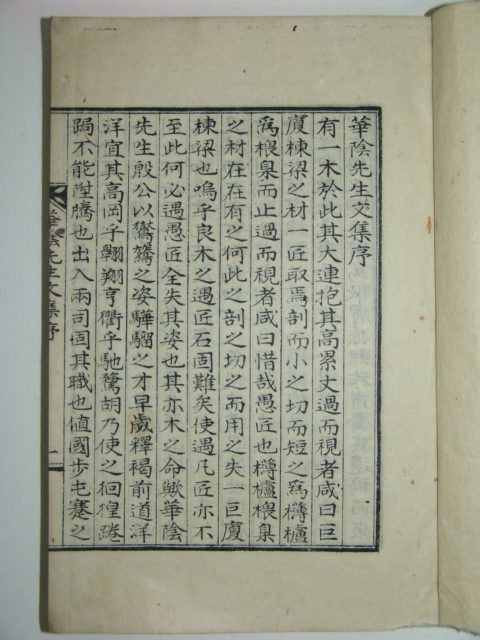 華陰先生文集序
有一木於此其大連抱其高累丈過而視者咸曰巨
廈棟梁之材一匠取焉剖而小之切而短之爲欂櫨
爲椳臬而止過而視者咸曰惜哉愚匠也欂櫨椳臬
之材在在有之何此之剖之切之而用之失一巨廈
棟梁也嗚乎良木之遇匠石固難矣使遇凡匠亦不
至此何必遇愚匠全失其姿也其亦木之命歟華陰
先生殷公以鸑鷟之姿驊騮之才早歲釋褐前道洋
洋宜其高岡乎翱翔亨衢乎馳騖胡乃使之徊徨踡
跼不能陞騰也出入兩司固其職也値國步屯蹇之
華陰先生文集序
一